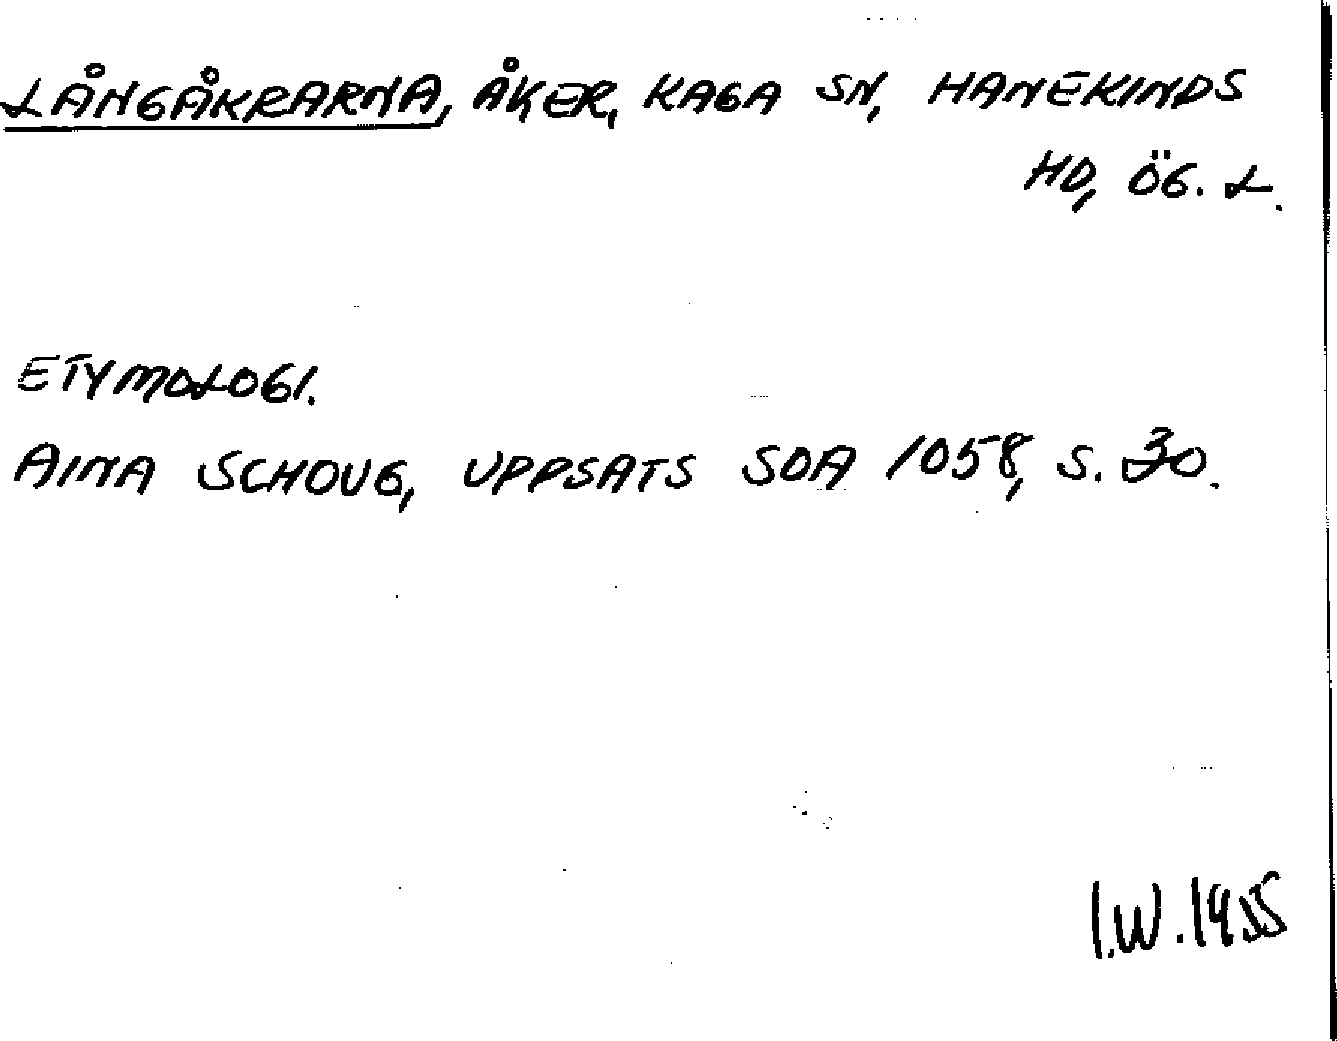 LÅNGÅKRARNA, ÅKER, KAGA SN, HANEKINDS
HD, ÖG. L.
ETYMOLOGI.
AINA SCHOUG, UPPSATS SOA 1058, S. 30.
I.W. 1955